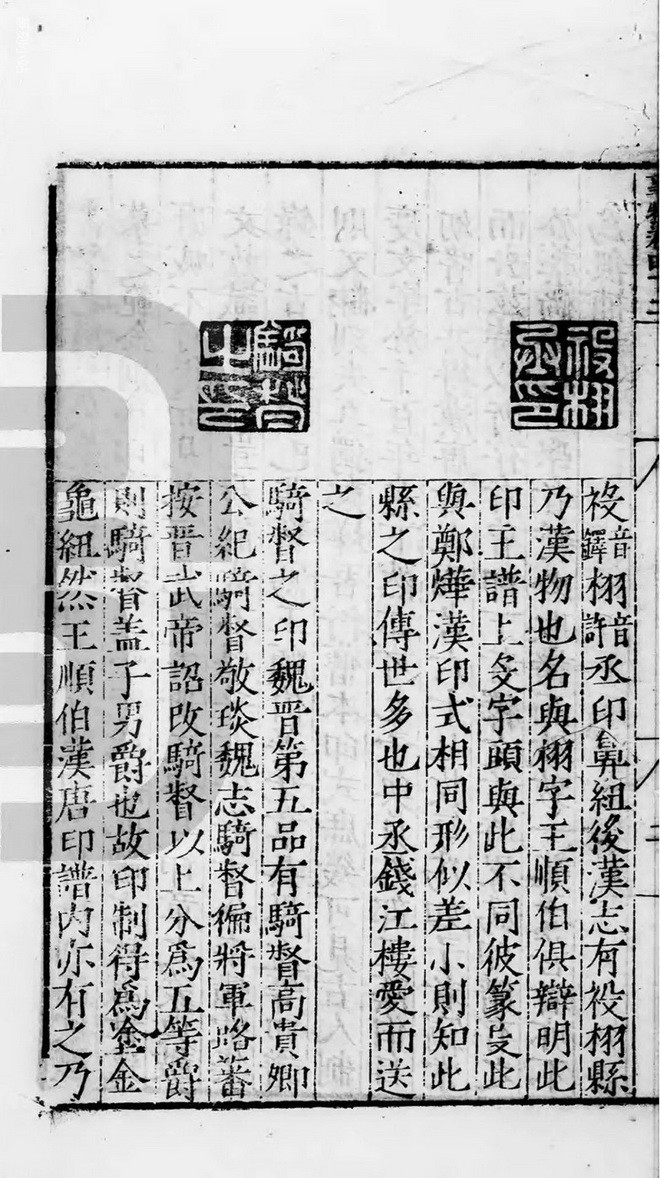 祋音鐸栩音許丞印鼻紐後漢志有祋栩縣
乃漢物也名與栩字王順伯俱辯明此
印王譜上殳字頭與此不同彼篆殳此
與鄭燁漢印式相同形似差小則知此
縣之印傳世多也中丞錢江樓愛而送
之
騎督之印魏晋第五品有騎督高貴卿
公紀騎督敬琰魏志騎督徧將軍路蕃
按晋武帝詔改騎督以上分爲五等爵
則騎督蓋子男爵也故印制得爲塗金
龜紐然王順伯漢唐印譜内亦有之乃
祋栩丞印
騎督之印